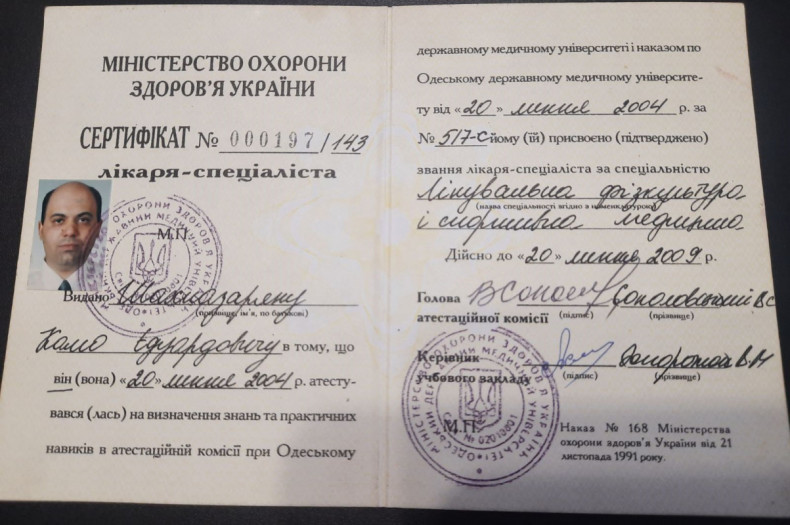 МІНІСТЕРСТВО ОХОРОНИ
ЗДОРОВ'Я УКРАЇНИ
СЕРТИФІКАТ № 000197/143
лікаря-спеціаліста
М.П.
Видано Шахназаряну
(прізвище, ім'я, по батькові)
Камо Едуардовичу в тому, що
він (вона) «20» липня 2004 р. атесту-
вався (лась) на визначення знань та практичних
навиків в атестаційній комісії при Одеському
державному медичному університеті і наказом по
Одеському державному медичному університе-
ту від «20» липня 2004 р. за
№ 517-с йому (їй) присвоєно (підтверджено)
звання лікаря-спеціаліста за спеціальністю
Лікувальна фізкультура
(назва спеціальності згідно з номенклатурою)
і спортивна медицина
Дійсно до «20» липня 2009 р.
Голова
атестаційної комісії
Соколовський В С
(підпис) (прізвище)
Керівник
учбового закладу
Запорожан В.М
(підпис) (прізвище)
М.П.
Наказ № 168 Міністерства
охорони здоров'я України від 21
листопада 1991 року.